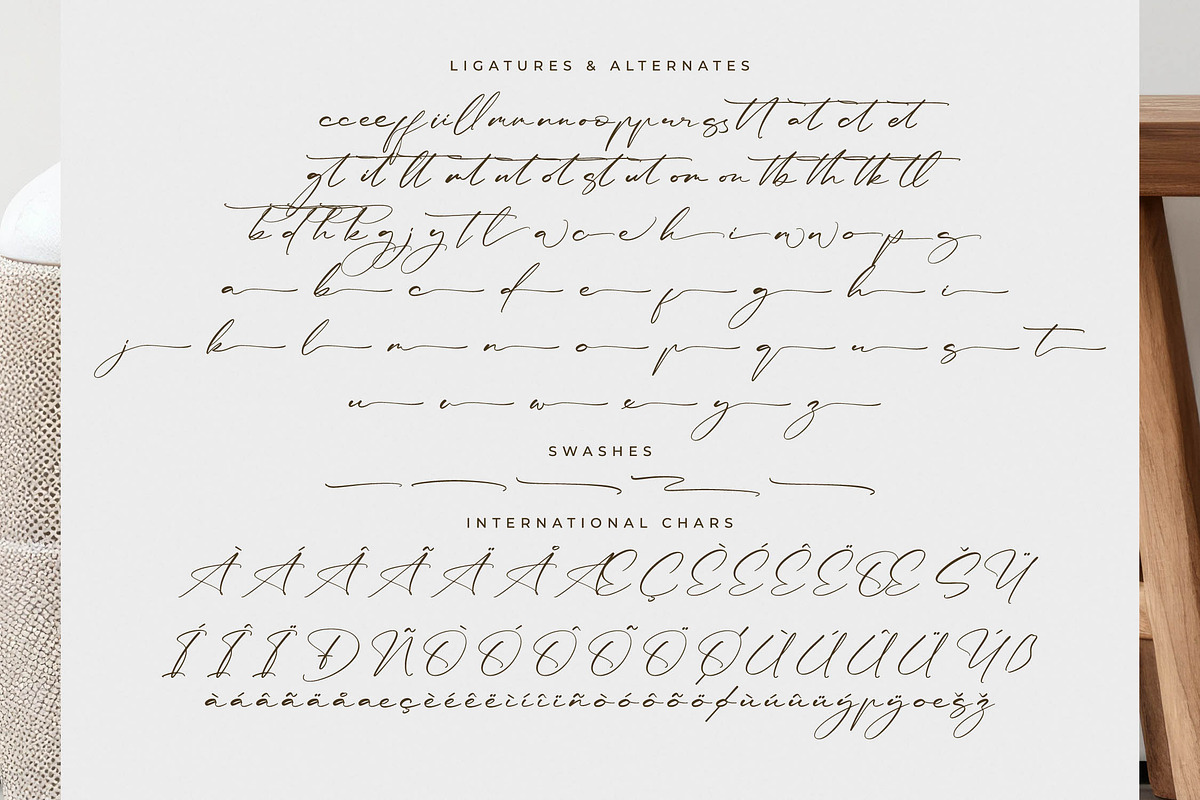 LIGATURES & ALTERNATES
cc ee ff ii ll mm nn oo pp ur rg ss tt at ct et
gt it lt mt nt ot st ut om on tb th tk tl
b d h k g j y t l a c e h i m n o p s
a b c d e f g h i
j k l m n o p q r s t
u v w x y z
SWASHES
INTERNATIONAL CHARS
À Á Â Ã Ä Å Æ Ç È É Ê Ë Œ Š Ÿ
Í Î Ï Ð Ñ Ò Ó Ô Õ Ö Ø Ù Ú Û Ü Ý ß
à á â ã ä å æ ç è é ê ë ì í î ï ñ ò ó ô õ ö ø ù ú û ü ý þ ÿ œ š ž